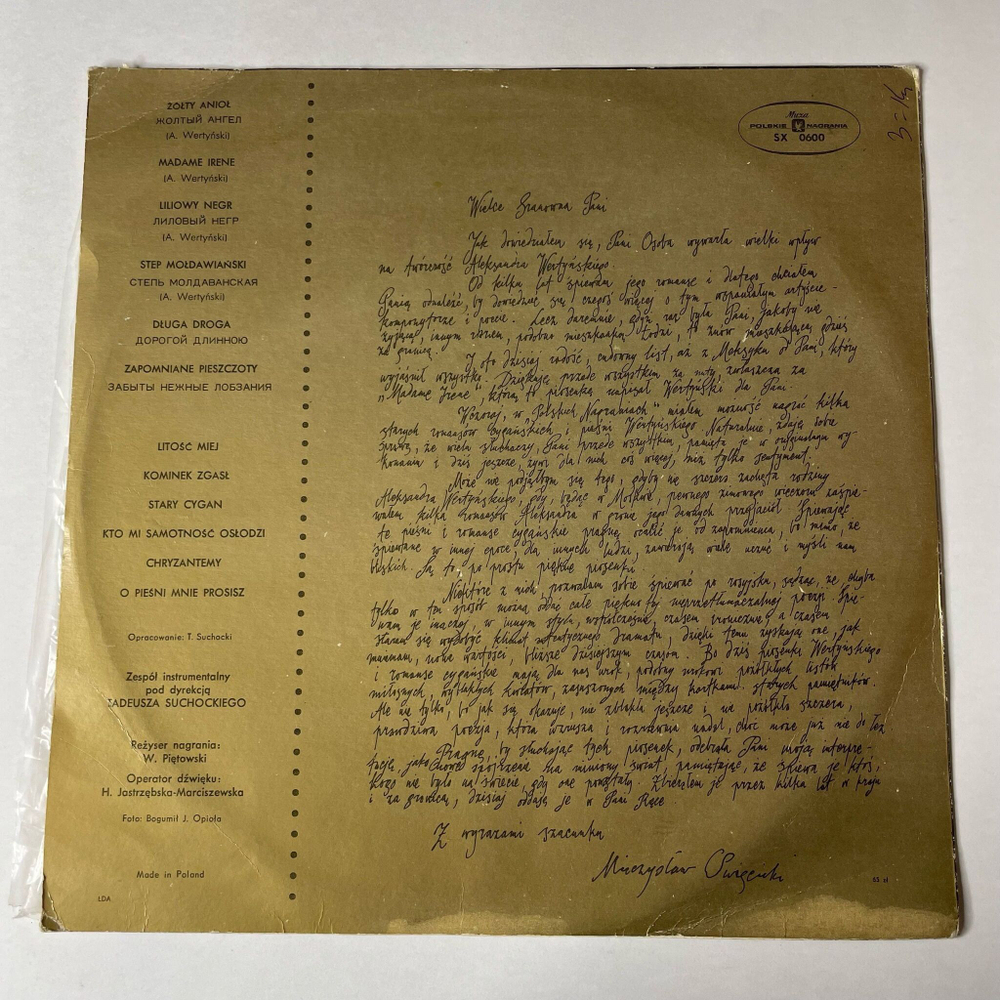 ŻÓŁTY ANIOŁ
ЖОЛТЫЙ АНГЕЛ
(A. Wertyński)
MADAME IRENE
(A. Wertyński)
LILIOWY NEGR
ЛИЛОВЫЙ НЕГР
(A. Wertyński)
STEP MOŁDAWIAŃSKI
СТЕПЬ МОЛДАВАНСКАЯ
(A. Wertyński)
DŁUGA DROGA
ДОРОГОЙ ДЛИННОЮ
ZAPOMNIANE PIESZCZOTY
ЗАБЫТЫ НЕЖНЫЕ ЛОБЗАНИЯ
LITOŚĆ MIEJ
KOMINEK ZGASŁ
STARY CYGAN
KTO MI SAMOTNOŚĆ OSŁODZI
CHRYZANTEMY
O PIEŚNI MNIE PROSISZ
Opracowanie: T. Suchocki
Zespół instrumentalny
pod dyrekcją
TADEUSZA SUCHOCKIEGO
Reżyser nagrania:
W. Piętowski
Operator dźwięku:
H. Jastrzębska-Marciszewska
Foto: Bogumił J. Opioła
Made in Poland
LDA
Muza
POLSKIE NAGRANIA
SX 0600
Wielce Szanowna Pani
Jak dowiedziałem się, Pani Osoba wywarła wielki wpływ
na twórczość Aleksandra Wertyńskiego.
Od kilku lat śpiewam jego romanse i dlatego chciałem
Panią odnaleźć, by dowiedzieć się czegoś więcej o tym wspaniałym artyście-
kompozytorze i poecie. Lecz daremnie, gdyż raz była Pani, jakoby nie
żyjąca, innym razem, podobno mieszkanką Łodzi, to znów mieszkającą gdzieś
za granicą.
I oto dzisiaj radość, cudowny list, aż z Meksyku od Pani, który
wyjaśnił wszystko. Dziękuję przede wszystkim za nuty zwłaszcza za
"Madame Irene", którą to piosenkę napisał Wertyński dla Pani.
Wczoraj, w "Polskich Nagraniach" miałem możność nagrać kilka
starych romansów cygańskich i pieśni Wertyńskiego. Naturalnie, zdaję sobie
sprawę, że wielu słuchaczy, Pani przede wszystkim, pamięta je w oryginalnym wy-
konaniu i dziś jeszcze, żywi dla nich coś więcej, niż tylko sentyment.
Może nie podjąłbym się tego, gdyby nie szczera zachęta rodziny
Aleksandra Wertyńskiego, gdy, będąc w Moskwie, pewnego zimowego wieczoru zaśpie-
wałem kilka romansów Aleksandra w gronie jego dawnych przyjaciół. Śpiewając
te pieśni i romanse cygańskie pragnę ocalić je od zapomnienia, bo mimo, że
śpiewane w innej epoce, dla innych ludzi, zawierają wiele uczuć i myśli nam
bliskich. Są to po prostu piękne piosenki.
Niektóre z nich, pozwalam sobie śpiewać po rosyjsku, sądząc, że chyba
tylko w ten sposób można oddać całe piękno tej nieprzetłumaczalnej poezji. Śpie-
wam je inaczej, w innym stylu, współcześnie, czasem ironicznie, a czasem
staram się wydobyć klimat autentycznego dramatu, dzięki temu zyskują one, jak
mniemam, nowe wartości, bliższe dzisiejszym czasom. Bo dziś piosenki Wertyńskiego
i romanse cygańskie mają dla nas urok, podobny urokowi pożółkłych listów
miłosnych, wyblakłych kwiatów, zasuszonych między kartkami starych pamiętników.
Ale nie tylko, bo jak się okazuje, nie zblakła jeszcze i nie pożółkła szczera,
prawdziwa poezja, która wzrusza i rozrzewnia nadal, choć może już nie do łez.
Pragnę, by słuchając tych piosenek, odebrała Pani moją interpre-
tację, jako nowe spojrzenie na miniony świat, pamiętając, że śpiewa je ktoś,
kogo nie było na świecie, gdy one powstały. Zbierałem je przez kilka lat w kraju
i za granicą, dzisiaj oddaję je w Pani Ręce
Z wyrazami szacunku
Mieczysław Święcicki
65 zł